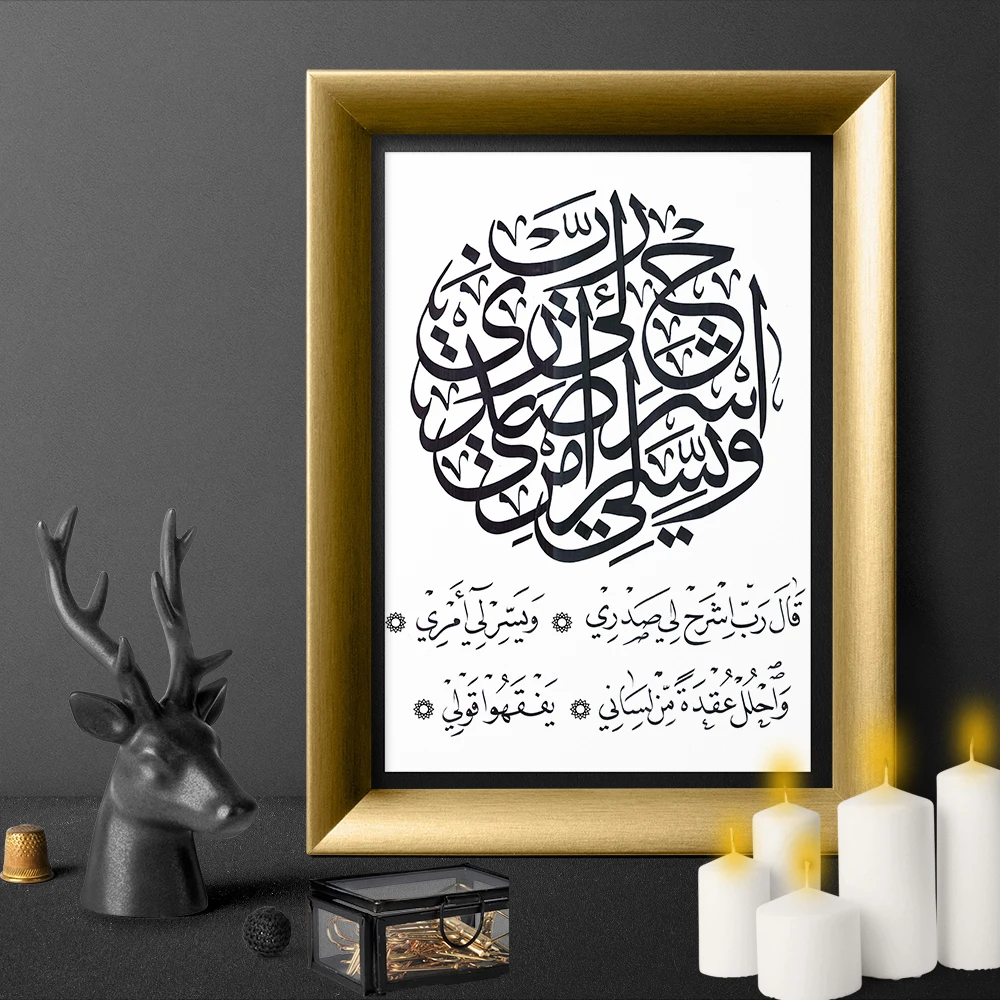 رب اشرح لي صدري ويسر لي أمري
قَالَ رَبِّ اشْرَحْ لِي صَدْرِي ۞ وَيَسِّرْ لِي أَمْرِي ۞
وَاحْلُلْ عُقْدَةً مِّن لِّسَانِي ۞ يَفْقَهُوا قَوْلِي ۞